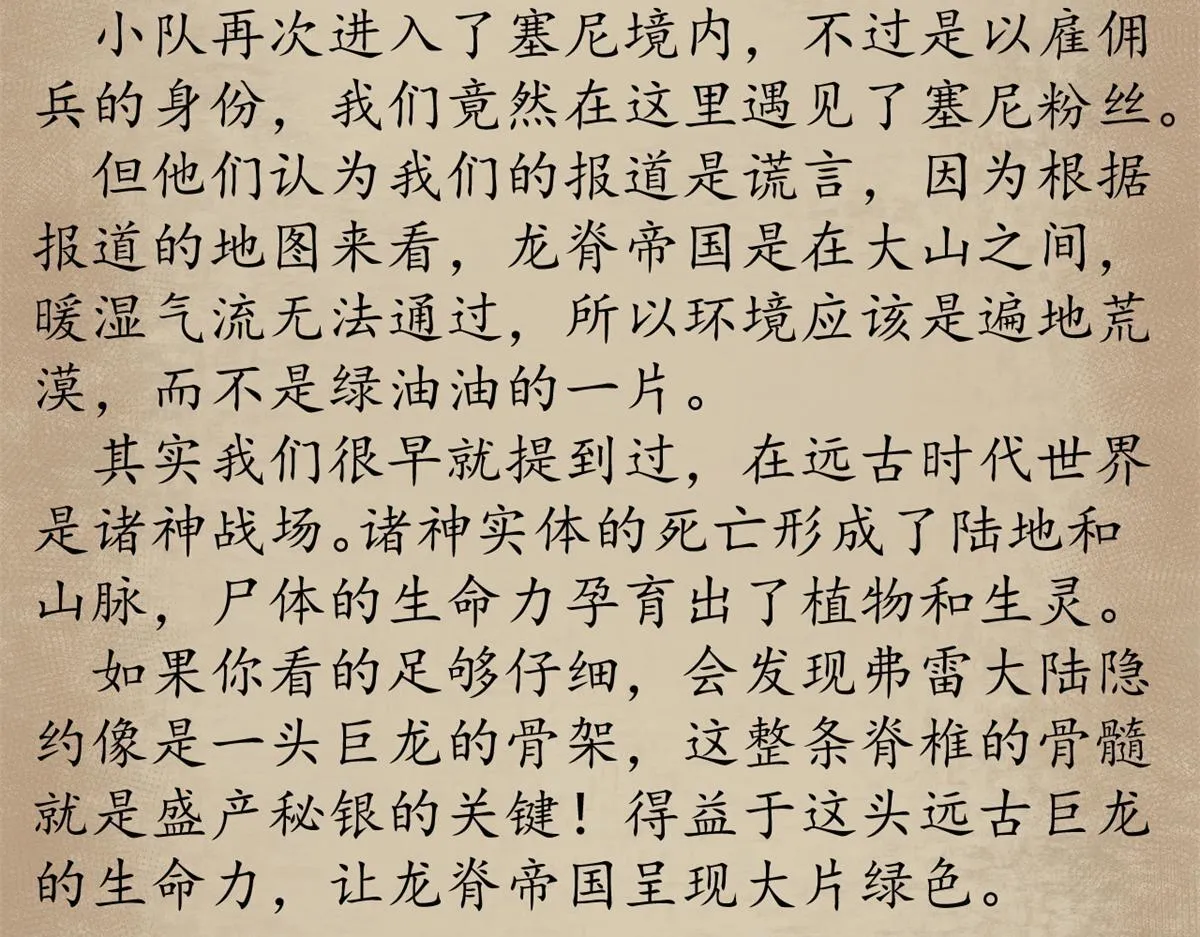 小队再次进入了塞尼境内，不过是以雇佣
兵的身份，我们竟然在这里遇见了塞尼粉丝。
但他们认为我们的报道是谎言，因为根据
报道的地图来看，龙脊帝国是在大山之间，
暖湿气流无法通过，所以环境应该是遍地荒
漠，而不是绿油油的一片。
其实我们很早就提到过，在远古时代世界
是诸神战场。诸神实体的死亡形成了陆地和
山脉，尸体的生命力孕育出了植物和生灵。
如果你看的足够仔细，会发现弗雷大陆隐
约像是一头巨龙的骨架，这整条脊椎的骨髓
就是盛产秘银的关键！得益于这头远古巨龙
的生命力，让龙脊帝国呈现大片绿色。